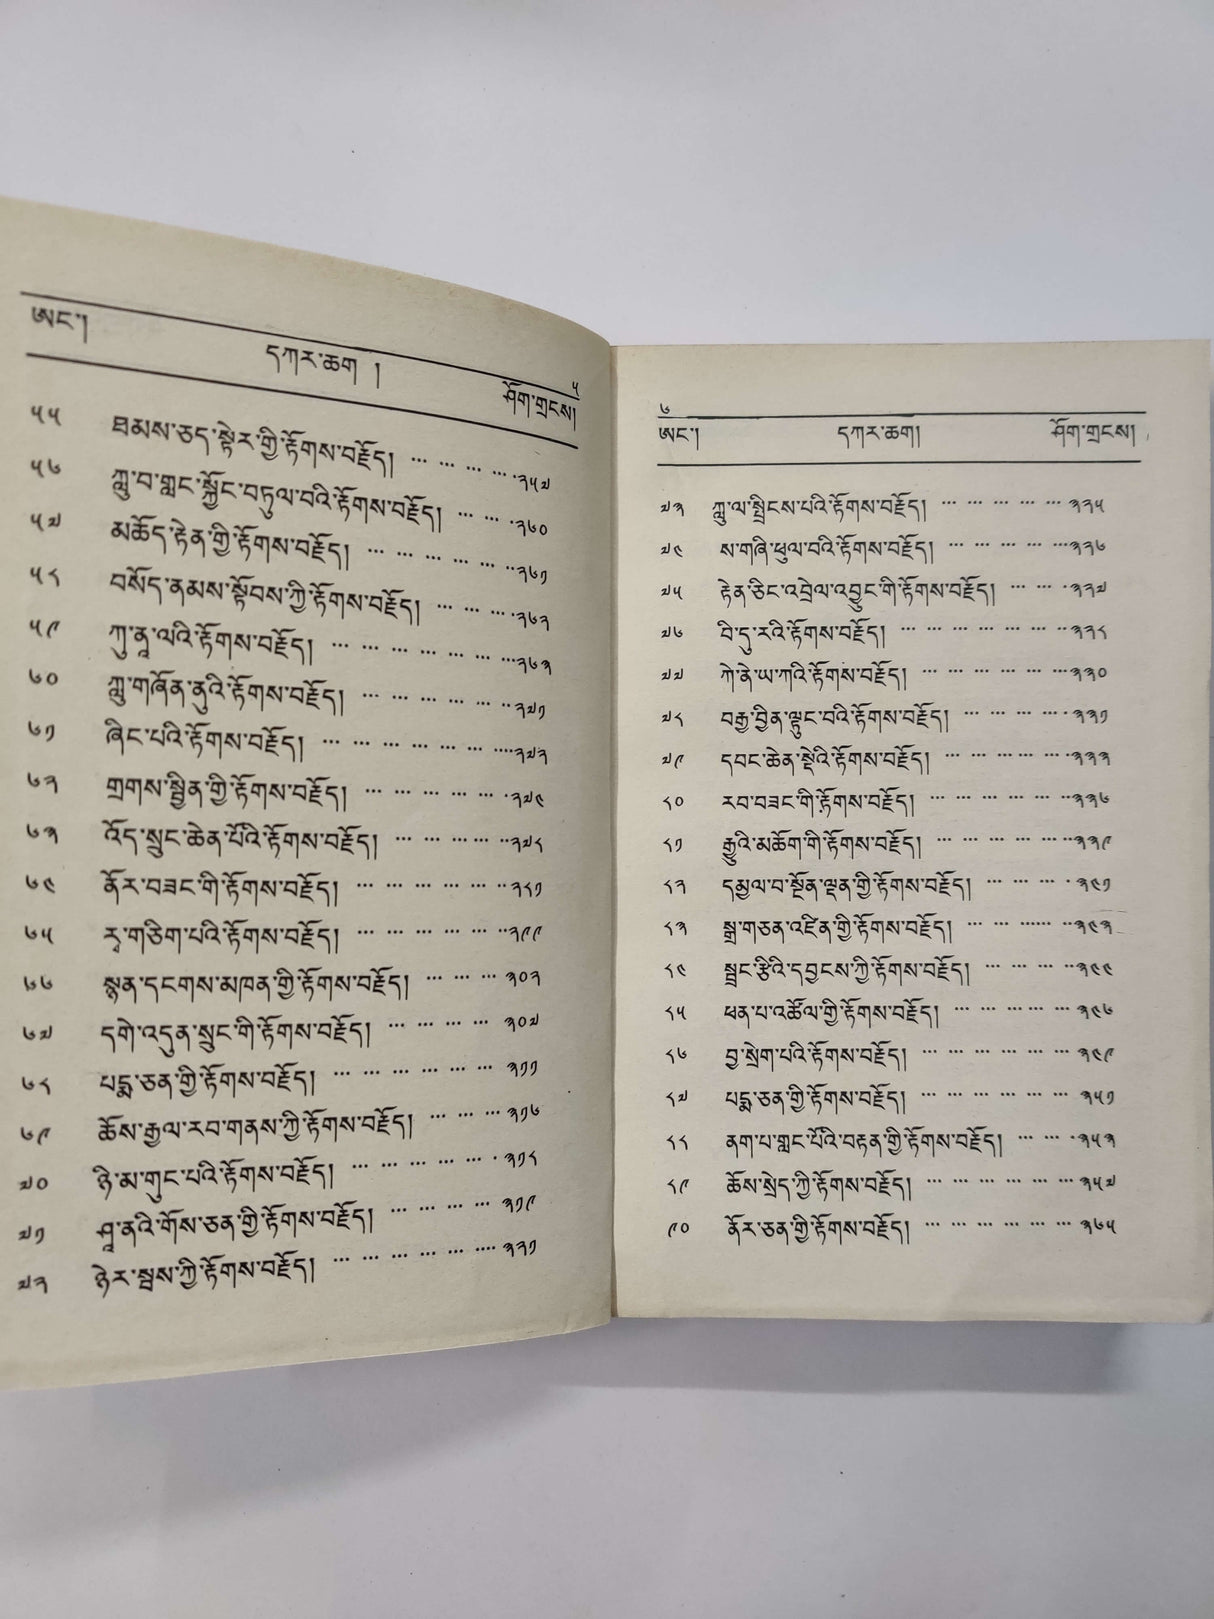 ༥
ཨང་། དཀར་ཆག ། ཤོག་གྲངས།
༥༥ ཐམས་ཅད་སྟེར་གྱི་རྟོགས་བརྗོད། ... ... ... ... ༢༥༧
༥༦ ཀླུ་བ་གླང་སྐྱོང་བཏུལ་བའི་རྟོགས་བརྗོད། ... ... ༢༦༠
༥༧ མཆོད་རྟེན་གྱི་རྟོགས་བརྗོད། ... ... ... ... ... ༢༦༡
༥༨ བསོད་ནམས་སྟོབས་ཀྱི་རྟོགས་བརྗོད། ... ... ... ༢༦༢
༥༩ ཀུ་ནཱ་ལའི་རྟོགས་བརྗོད། ... ... ... ... ... ... ༢༦༣
༦༠ ཀླུ་གཞོན་ནུའི་རྟོགས་བརྗོད། ... ... ... ... ... ༢༧༡
༦༡ ཞིང་པའི་རྟོགས་བརྗོད། ... ... ... ... ... ... ༢༧༢
༦༢ གྲགས་སྦྱིན་གྱི་རྟོགས་བརྗོད། ... ... ... ... ... ༢༧༤
༦༣ འོད་སྲུང་ཆེན་པོའི་རྟོགས་བརྗོད། ... ... ... ... ༢༧༨
༦༤ ནོར་བཟང་གི་རྟོགས་བརྗོད། ... ... ... ... ... ༢༨༡
༦༥ རྭ་གཅིག་པའི་རྟོགས་བརྗོད། ... ... ... ... ... ༢༩༩
༦༦ སྙན་དངགས་མཁན་གྱི་རྟོགས་བརྗོད། ... ... ... ༣༠༢
༦༧ དགེ་འདུན་སྲུང་གི་རྟོགས་བརྗོད། ... ... ... ... ༣༠༧
༦༨ པདྨ་ཅན་གྱི་རྟོགས་བརྗོད། ... ... ... ... ... ... ༣༡༡
༦༩ ཆོས་རྒྱལ་རབ་གནས་ཀྱི་རྟོགས་བརྗོད། ... ... ... ༣༡༦
༧༠ ཉི་མ་གུང་པའི་རྟོགས་བརྗོད། ... ... ... ... ... ༣༡༨
༧༡ ཤཱ་ནའི་གོས་ཅན་གྱི་རྟོགས་བརྗོད། ... ... ... ... ༣༡༩
༧༢ ཉེར་སྦས་ཀྱི་རྟོགས་བརྗོད། ... ... ... ... ... ... ༣༢༡
༦
ཨང་། དཀར་ཆག། ཤོག་གྲངས།
༧༣ ཀླུ་ལ་སྤྲིངས་པའི་རྟོགས་བརྗོད། ... ... ... ... ... ༣༢༥
༧༤ ས་གཞི་ཕུལ་བའི་རྟོགས་བརྗོད། ... ... ... ... ... ༣༢༦
༧༥ རྟེན་ཅིང་འབྲེལ་འབྱུང་གི་རྟོགས་བརྗོད། ... ... ༣༢༧
༧༦ བི་དུ་རའི་རྟོགས་བརྗོད། ... ... ... ... ... ... ... ༣༢༨
༧༧ ཀེ་ནེ་ཡ་ཀའི་རྟོགས་བརྗོད། ... ... ... ... ... ... ༣༣༠
༧༨ བརྒྱ་བྱིན་ལྟུང་བའི་རྟོགས་བརྗོད། ... ... ... ... ༣༣༡
༧༩ དབང་ཆེན་སྡེའི་རྟོགས་བརྗོད། ... ... ... ... ... ༣༣༣
༨༠ རབ་བཟང་གི་རྟོགས་བརྗོད། ... ... ... ... ... ... ༣༣༦
༨༡ རྒྱུའི་མཆོག་གི་རྟོགས་བརྗོད། ... ... ... ... ... ... ༣༣༩
༨༢ དམྱལ་བ་སྔོན་ལྡན་གྱི་རྟོགས་བརྗོད། ... ... ... ༣༤༡
༨༣ སྒྲ་གཅན་འཛིན་གྱི་རྟོགས་བརྗོད། ... ... ... ... ༣༤༣
༨༤ སྦྲང་རྩིའི་དབྱངས་ཀྱི་རྟོགས་བརྗོད། ... ... ... ༣༤༤
༨༥ ཕན་པ་འཚོལ་གྱི་རྟོགས་བརྗོད། ... ... ... ... ... ༣༤༦
༨༦ བྱ་སྲེག་པའི་རྟོགས་བརྗོད། ... ... ... ... ... ... ༣༤༩
༨༧ པདྨ་ཅན་གྱི་རྟོགས་བརྗོད། ... ... ... ... ... ... ༣༥༡
༨༨ ནག་པ་གླང་པོའི་བརྟན་གྱི་རྟོགས་བརྗོད། ... ... ༣༥༣
༨༩ ཆོས་སྲེད་ཀྱི་རྟོགས་བརྗོད། ... ... ... ... ... ... ༣༥༧
༩༠ ནོར་ཅན་གྱི་རྟོགས་བརྗོད། ... ... ... ... ... ... ༣༦༥